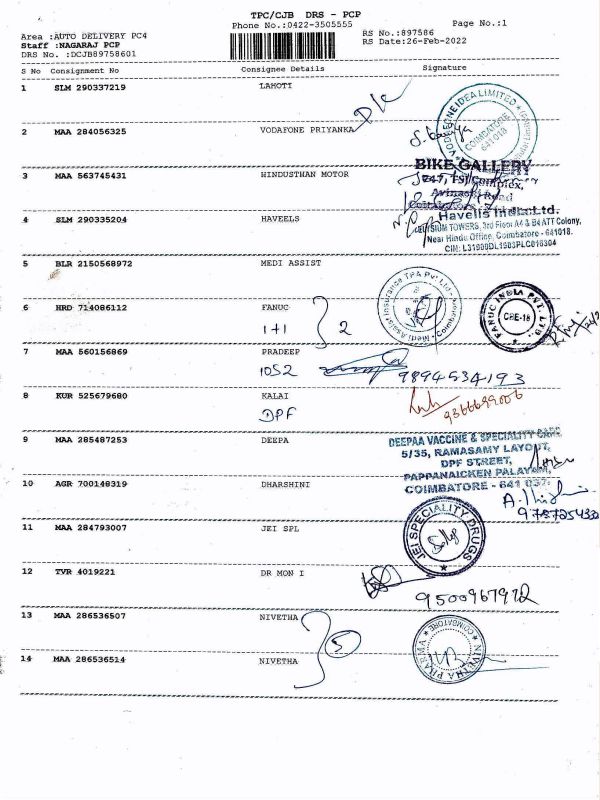 TPC/CJB DRS - PCP
Phone No.:0422-3505555
Page No.:1
Area :AUTO DELIVERY PC4
RS No.:897586
Staff :NAGARAJ PCP
RS Date:26-Feb-2022
DRS No. :DCJB89758601
S No Consignment No Consignee Details Signature
1 SLM 290337219 LAHOTI
VODAFONE IDEA LIMITED
COIMBATORE
641018
2 MAA 284056325 VODAFONE PRIYANKA
BIKE GALLERY
3 MAA 563745431 HINDUSTHAN MOTOR
Havells India Ltd.
4 SLM 290335204 HAVEELS
ELYSIUM TOWERS, 3rd Floor A4 & B4 ATT Colony,
Near Hindu Office, Coimbatore - 641018.
CIN: L31900DL1983PLC016304
5 BLR 2150568972 MEDI ASSIST
Medi Assist Insurance TPA Pvt. Ltd
Coimbatore
6 HRD 714086112 FANUC
FANUC INDIA PVT. LTD.
CBE-18
1+1 2
7 MAA 560156869 PRADEEP
1052
9894534193
8 KUR 525679680 KALAI
9366699006
DPF
9 MAA 285487253 DEEPA
DEEPAA VACCINE & SPECIALITY CARE
5/35, RAMASAMY LAYOUT,
DPF STREET,
PAPPANAICKEN PALAYAM,
COIMBATORE - 641 037.
10 AGR 700148319 DHARSHINI
11 MAA 284793007 JEI SPL
JEI SPECIALITY DRUGS
12 TVR 4019221 DR MON I
9500967972
13 MAA 286536507 NIVETHA
5
NIVETHA PHARMA
COIMBATORE
14 MAA 286536514 NIVETHA